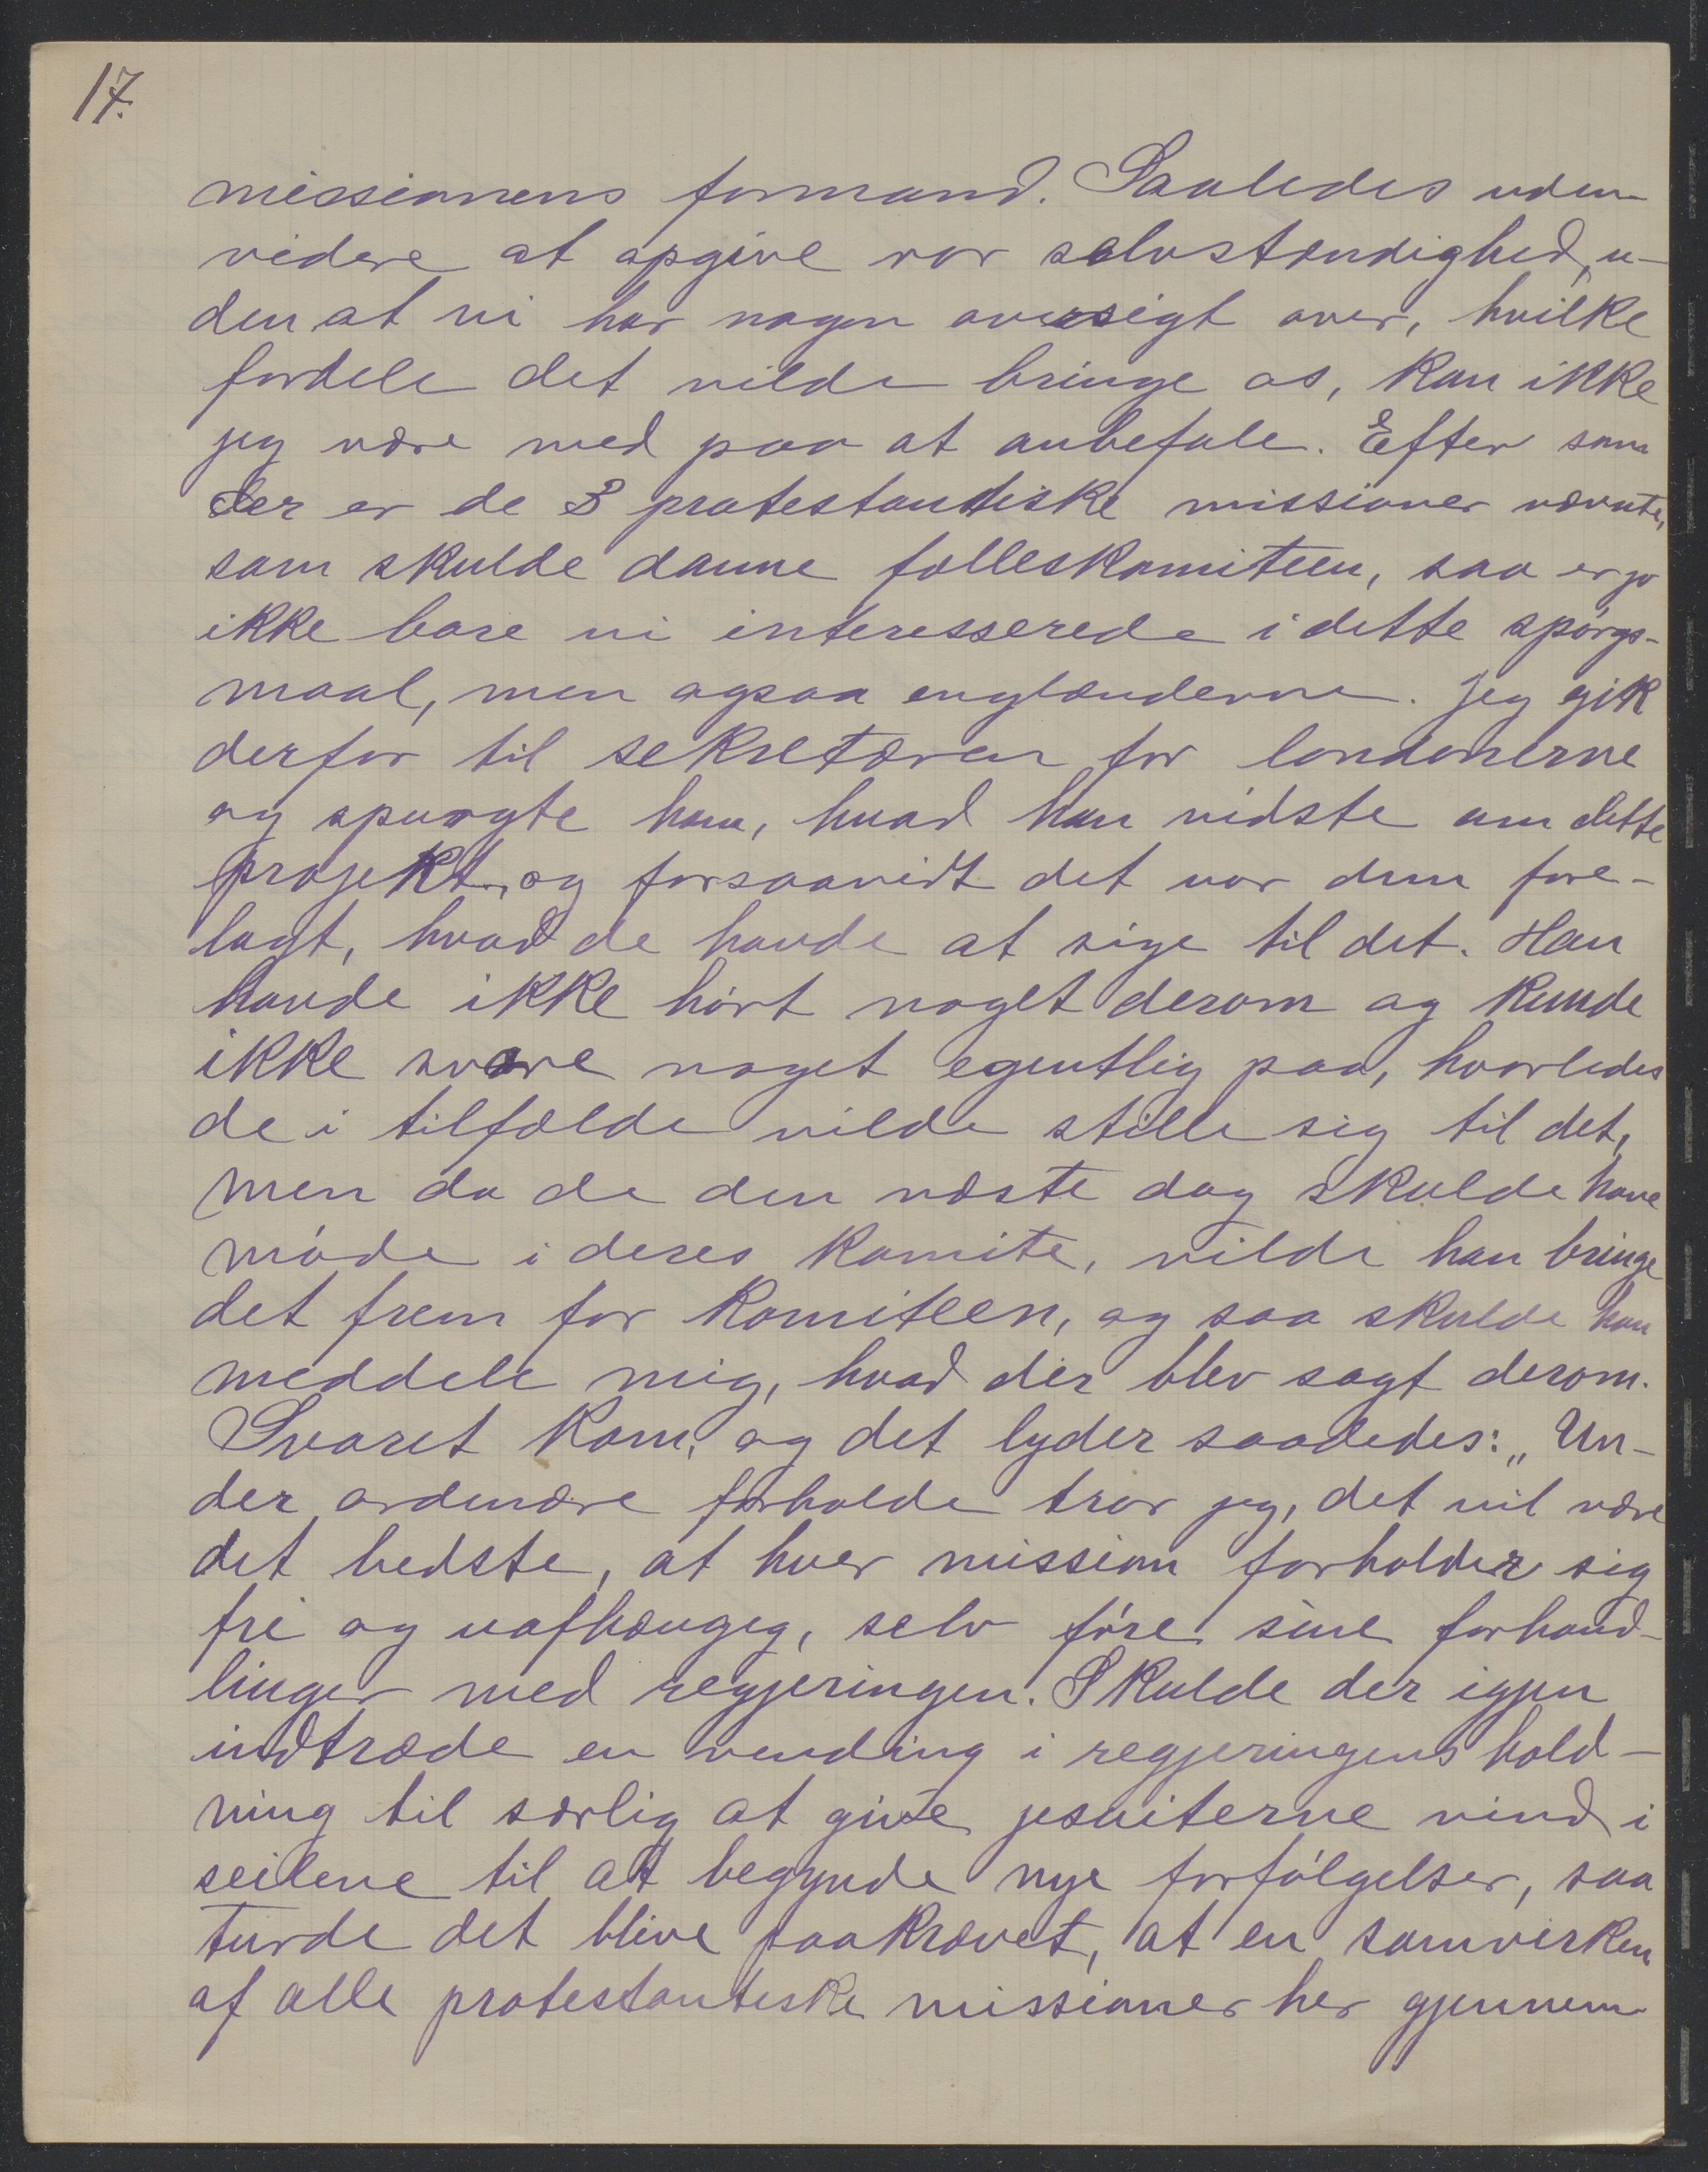 17.
missionens formand. Saaledes uden
videre at opgive vor selvstændighed, u-
den at vi har nogen oversigt over, hvilke
fordele det vilde bringe os, kan ikke
jeg være med paa at anbefale. Efter som
der er de 3 protestantiske missioner nævnte,
som skulde danne felleskomiteen, saa er jo
ikke bare vi interesserede i dette spórgs-
maal, men ogsaa englænderne. Jeg gik
derfor til sekretæren for londonerne
og spurgte ham, hvad han vidste om dette
projekt, og forsaavidt det var dem fore-
lagt, hvad de havde at sige til det. Han
havde ikke hórt noget derom og kunde
ikke svare noget egentlig paa, hvorledes
de i tilfælde vilde stille sig til det,
men da de den næste dag skulde have
móde i deres komite, vilde han bringe
det frem for komiteen, og saa skulde han
meddele mig, hvad der blev sagt derom.
Svaret kom, og det lyder saaledes: „Un-
der ordenære forholde tror jeg, det vil være
det bedste, at hver mission forholder sig
fri og uafhængeg, selv fóre sine forhand-
linger med regjeringen. Skulde der igjen
indtræde en vending i regjeringens hold-
ning til særlig at give jesuiterne vind i
seilene til at begynde nye forfólgelser, saa
turde det blive paakrævet, at en samvirken
af alle protestantiske missioner her gjennem